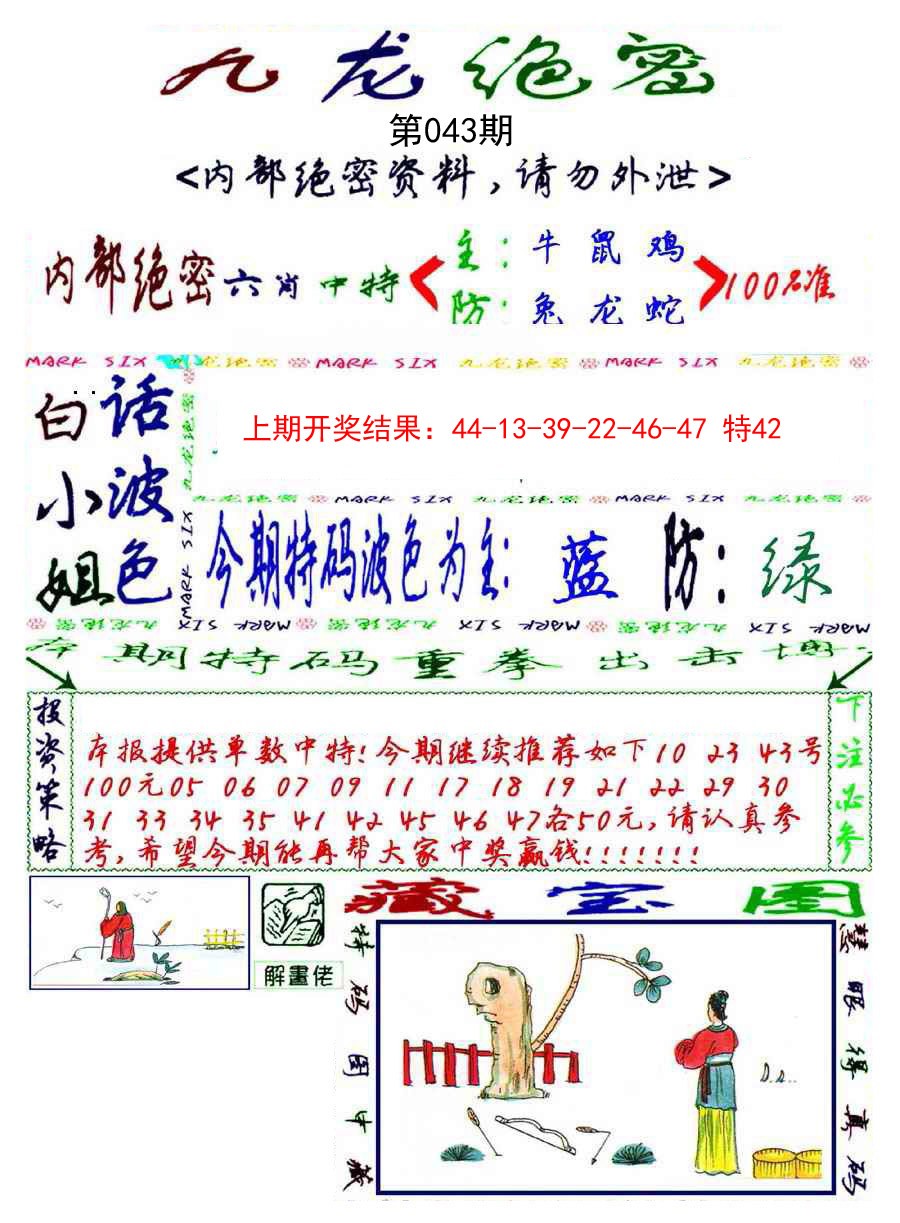 九龙绝密
第043期
<内部绝密资料,请勿外泄>
主:牛 鼠 鸡
内部绝密六肖中特 100%准
防:兔 龙 蛇
MARK SIX 九龙绝密 MARK SIX 九龙绝密 MARK SIX 九龙绝密
白话
小波
姐色
九龙绝密
MARK SIX
上期开奖结果：44-13-39-22-46-47 特42
九龙绝密 MARK SIX 九龙绝密 MARK SIX 九龙绝密
今期特码波色为主:蓝 防:绿
九龙绝密 MARK SIX 九龙绝密 MARK SIX 九龙绝密 MARK SIX
本期特码重拳出击
投资策略
本报提供单数中特!今期继续推荐如下10 23 43号
100元05 06 07 09 11 17 18 19 21 22 29 30
31 33 34 35 41 42 45 46 47各50元,请认真参
考,希望今期能再帮大家中奖赢钱!!!!!!!
下注必参
解畫佬
藏宝图
特码图中藏
慧眼得真码